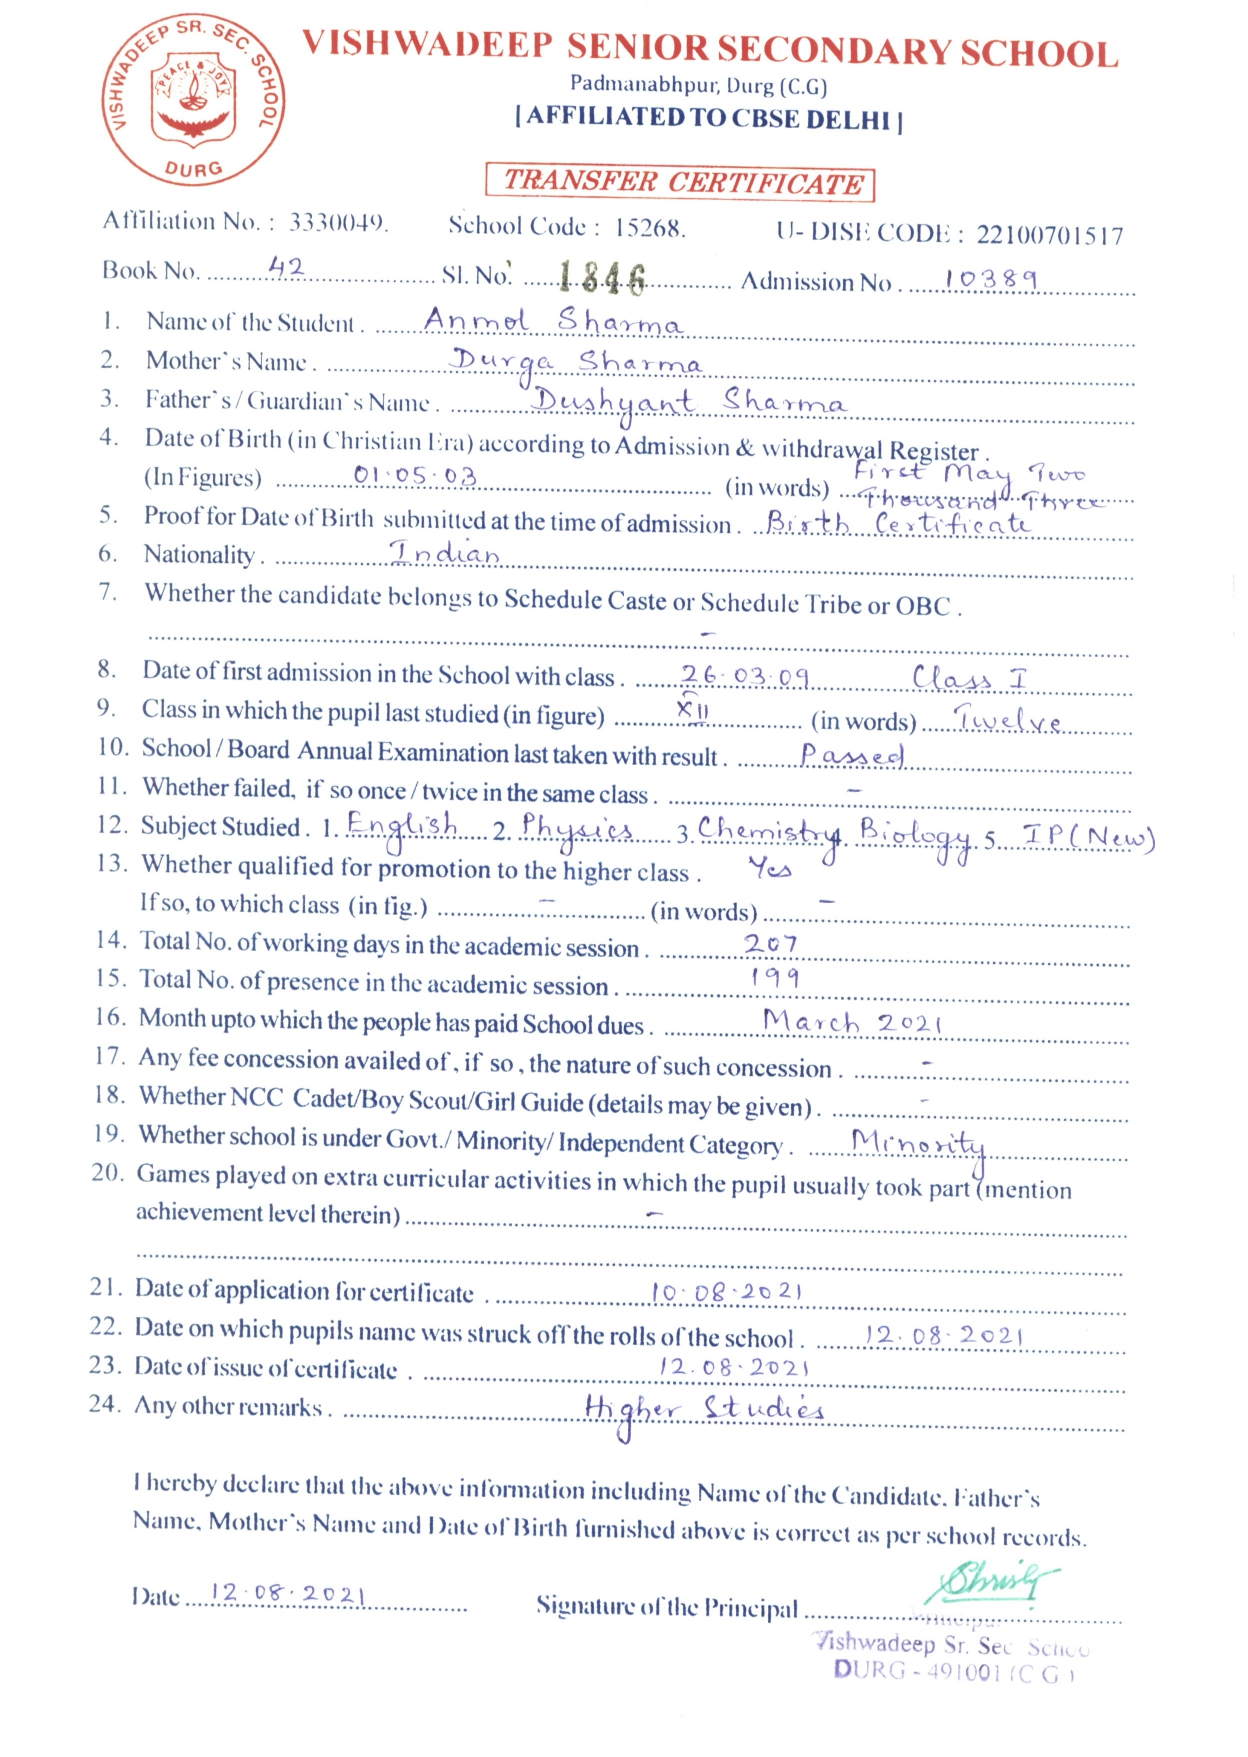 VISHWADEEP SR. SEC. SCHOOL
PEACE & JOY
DURG
VISHWADEEP SENIOR SECONDARY SCHOOL
Padmanabhpur, Durg (C.G)
| AFFILIATED TO CBSE DELHI |
TRANSFER CERTIFICATE
Affiliation No. : 3330049. School Code : 15268. U- DISE CODE : 22100701517
Book No. 42 Sl. No. 1846 Admission No. 10389
1. Name of the Student. Anmol Sharma
2. Mother's Name. Durga Sharma
3. Father's/Guardian's Name. Dushyant Sharma
4. Date of Birth (in Christian Era) according to Admission & withdrawal Register.
(In Figures) 01.05.03 (in words) First May Two Thousand Three
5. Proof for Date of Birth submitted at the time of admission. Birth Certificate
6. Nationality. Indian
7. Whether the candidate belongs to Schedule Caste or Schedule Tribe or OBC.
-
8. Date of first admission in the School with class. 26.03.09 Class I
9. Class in which the pupil last studied (in figure) XII (in words) Twelve
10. School/Board Annual Examination last taken with result. Passed
11. Whether failed, if so once/twice in the same class. -
12. Subject Studied. 1. English 2. Physics 3. Chemistry 4. Biology 5. IP (New)
13. Whether qualified for promotion to the higher class. Yes
If so, to which class (in fig.) - (in words) -
14. Total No. of working days in the academic session. 207
15. Total No. of presence in the academic session. 199
16. Month upto which the people has paid School dues. March 2021
17. Any fee concession availed of, if so, the nature of such concession. -
18. Whether NCC Cadet/Boy Scout/Girl Guide (details may be given). -
19. Whether school is under Govt./ Minority/ Independent Category. Minority
20. Games played on extra curricular activities in which the pupil usually took part (mention
achievement level therein) -
21. Date of application for certificate. 10.08.2021
22. Date on which pupils name was struck off the rolls of the school. 12.08.2021
23. Date of issue of certificate. 12.08.2021
24. Any other remarks. Higher Studies
I hereby declare that the above information including Name of the Candidate, Father's
Name, Mother's Name and Date of Birth furnished above is correct as per school records.
Date 12.08.2021 Signature of the Principal
Principal
Vishwadeep Sr. Sec School
DURG - 491001 (C G)